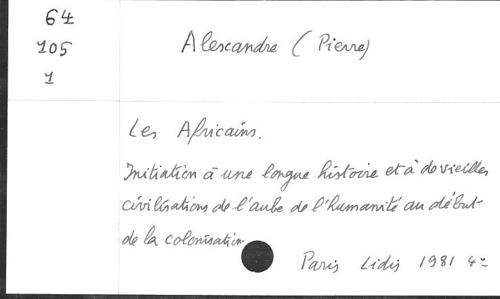 64
105
1
Alexandre (Pierre)
Les Africains.
Initiation à une longue histoire et à de vieilles
civilisations de l'aube de l'humanité au début
de la colonisation.
Paris Lidis 1981 4°